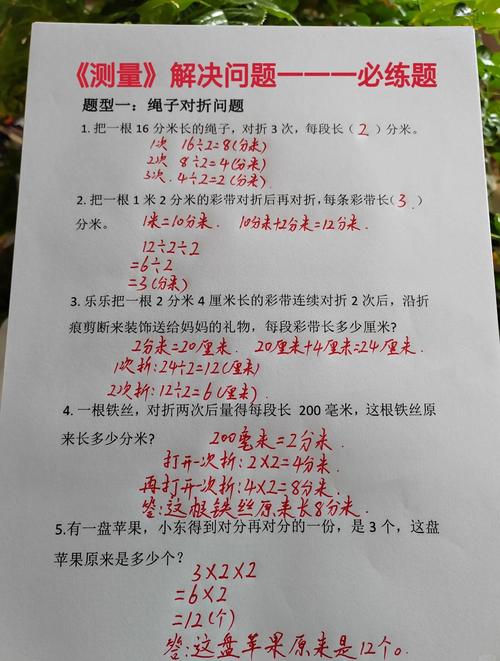 《测量》解决问题一一一必练题
题型一：绳子对折问题
1. 把一根16分米长的绳子，对折3次，每段长（2）分米。
1次 16÷2=8(分米)
2次 8÷2=4(分米)
3次. 4÷2=2(分米)
2. 把一根1米2分米的彩带对折后再对折，每条彩带长（3）
分米。 1米=10分米. 10分米+2分米=12分米.
12÷2÷2
=6÷2
=3(分米)
3. 乐乐把一根2分米4厘米长的彩带连续对折2次后，沿折
痕剪断来装饰送给妈妈的礼物，每段彩带长多少厘米？
2分米=20厘米. 20厘米+4厘米=24厘米.
1次折:24÷2=12(厘米)
2次折:12÷2=6(厘米).
4. 一根铁丝，对折两次后量得每段长 200毫米，这根铁丝原
来长多少分米？ 200毫米=2分米.
打开一次折:2×2=4分米.
再打开一次折:4×2=8分米.
答:这根铁丝原来长8分米.
5.有一盘苹果，小东得到对分再对分的一份，是3个，这盘
苹果原来是多少个？
3×2×2
=6×2
=12(个)
答:这盘苹果原来是12个。